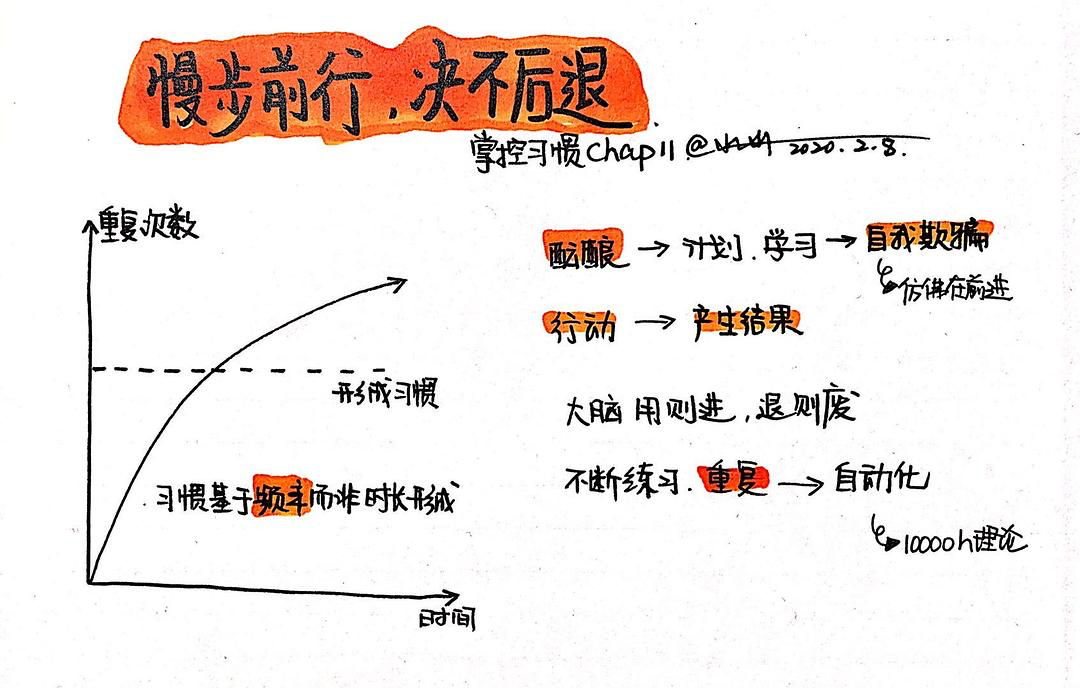 慢步前行，决不后退
掌控习惯Chap11 @ 2020.2.8.
重复次数
形成习惯
习惯基于频率而非时长形成
时间
酝酿 → 计划、学习 → 自我欺骗
仿佛在前进
行动 → 产生结果
大脑 用则进，退则废
不断练习、重复 → 自动化
10000h理论